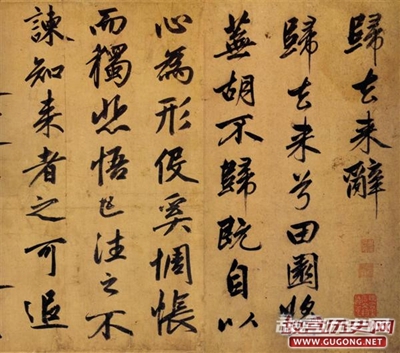 歸去来辭
歸去来兮田園将
蕪胡不歸既自以
心為形役奚惆悵
而獨悲悟已往之不
諫知来者之可追
故宫历史网
WWW.GUGONG.NET